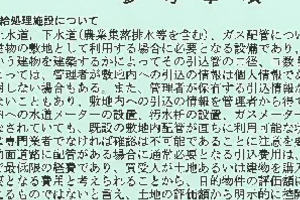 給処理施設について
上水道、下水道(農業集落排水等を含む)、ガス配管につい
建物の敷地として利用する場合に必要となる設備であり、
いう建物を建築するかによってその引込管の口径、口数
よっては、管理者が敷地内への引込の情報は個人情報であ
明しない場合もある。また、管理者が保有する引込情報が
ないこともあり、敷地内への引込の情報を管理者から得て
内への水道メーターの設置、汚水桝の設置、ガスメーター
なされていても、既設の敷地内配管が直ちに利用可能な
に専門業者でなければ確認は不可能であることに注意を
前面道路に配管がある場合に通常必要となる引込費用は、
で最低限の経費であり、買受人が土地あるいは建物を購入
要となる費用と考えられることから、目的物件の評価額に
るものではないと言え、土地の評価額から明示的に控除